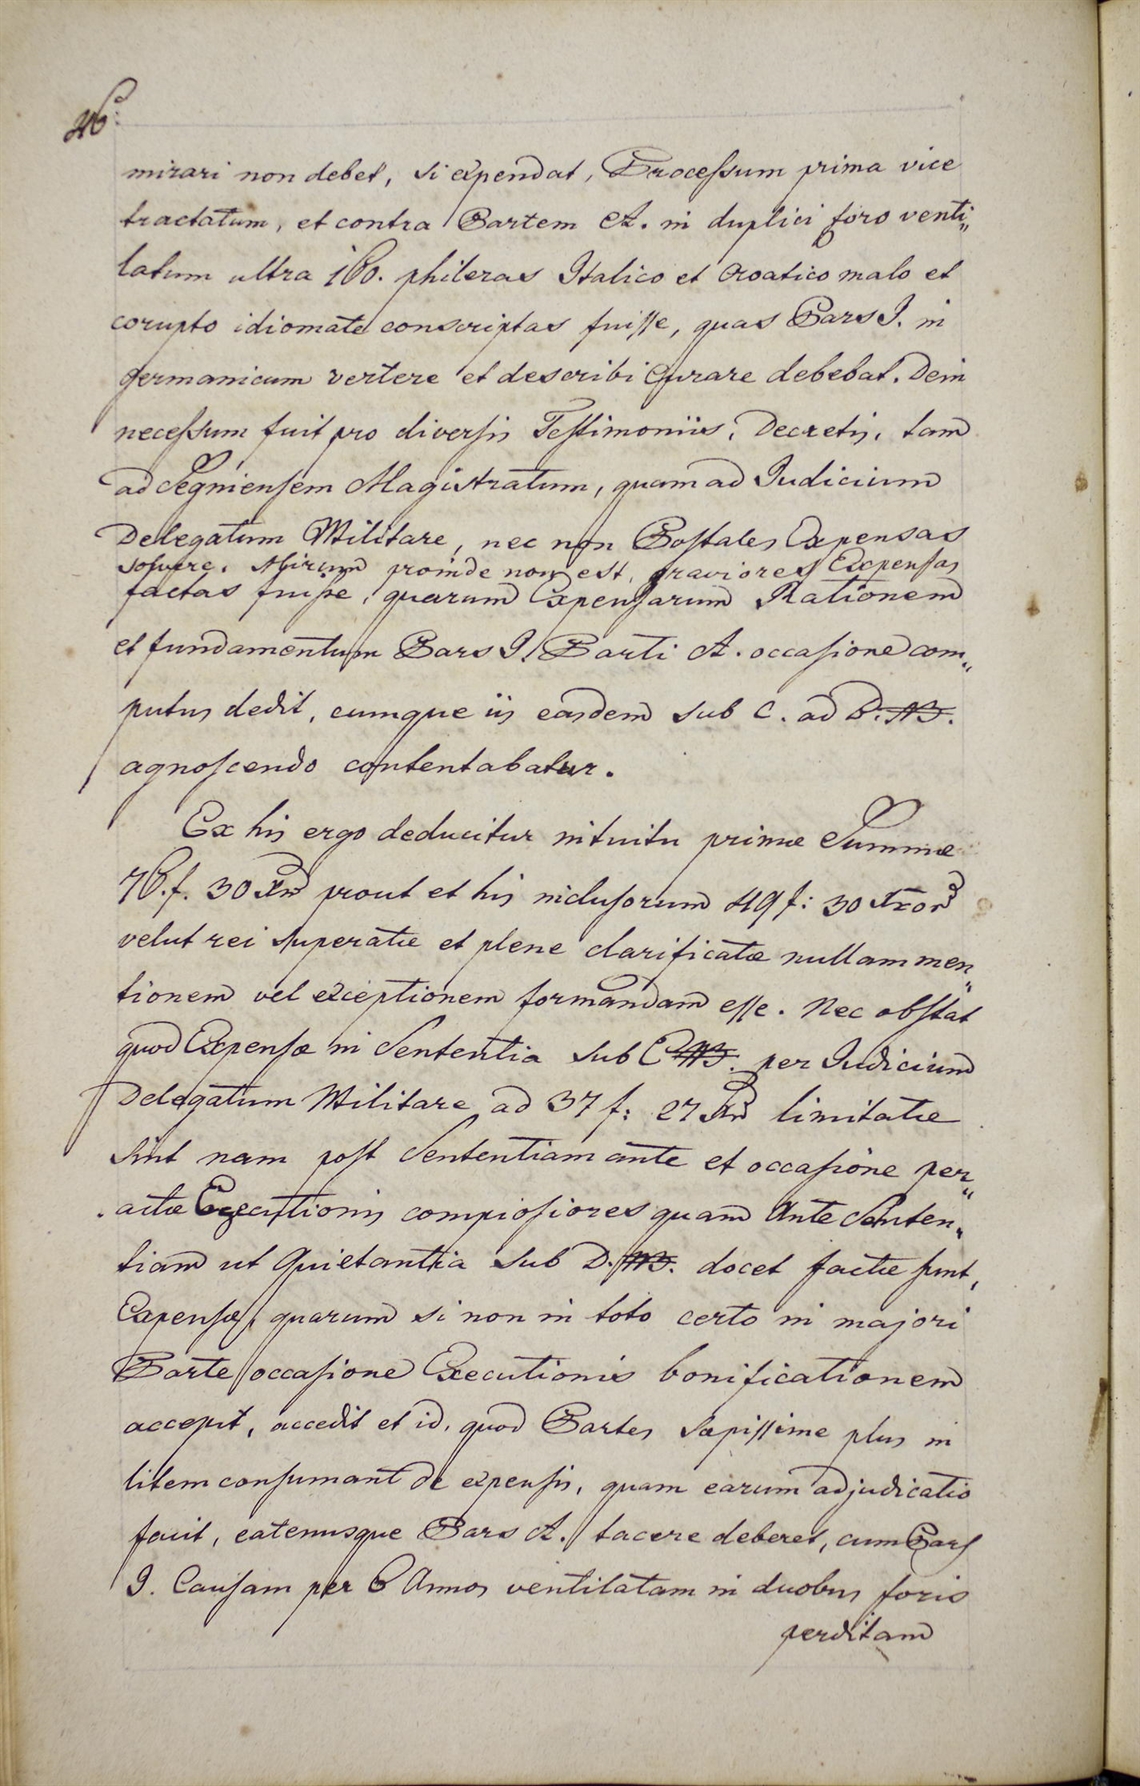 46.
mirari non debet, si expendat, Processum prima vice
tractatum, et contra Partem A. in duplici foro venti„
latum ultra 160. phileras Italico et Croatico malo et
corupto idiomate conscriptas fuisse, quas Pars I. in
germanicum vertere et describi Curare debebat. Dein
necessum fuit pro diversis Testimoniis, Decretis, tam
ad Segniensem Magistratum, quam ad Judicium
Delegatum Militare, nec non Postales Expensas
solvere. Mirum proinde non est, graviores Expensas
factas fuisse, quarum Expensarum Rationem
et fundamentum Pars I. Parti A. occasione com„
putus dedit, cumque iis easdem sub C. ad B. NB.
agnoscendo contentabatur.
Ex his ergo deducitur intuitu primæ Summæ
76.f. 30 Xr prout et his inclusorum 49 f: 30 Xror
velut rei superatæ et plene clarificatæ nullam men„
tionem vel exceptionem formandam esse. Nec obstat
quod Expensæ in Sententia sub C NB. per Judicium
Delegatum Militare ad 37 f: 27 Xr limitatæ
sint nam post Sententiam ante et occasione per„
actæ Executionis compiosiores quam Ante Senten„
tiam ut Quietantia sub D. NB. docet factæ sunt,
Expensæ, quarum si non in toto certo in majori
Parte occasione Executionis bonificationem
accepit, accedit et id, quod Partes sæpissime plus in
litem consumant de expensis, quam earum adjudicatio
fuit, eatenusque Pars A. tacere deberet, cum Pars
I. Causam per 6 Annos ventilatam in duobus foris
perditam